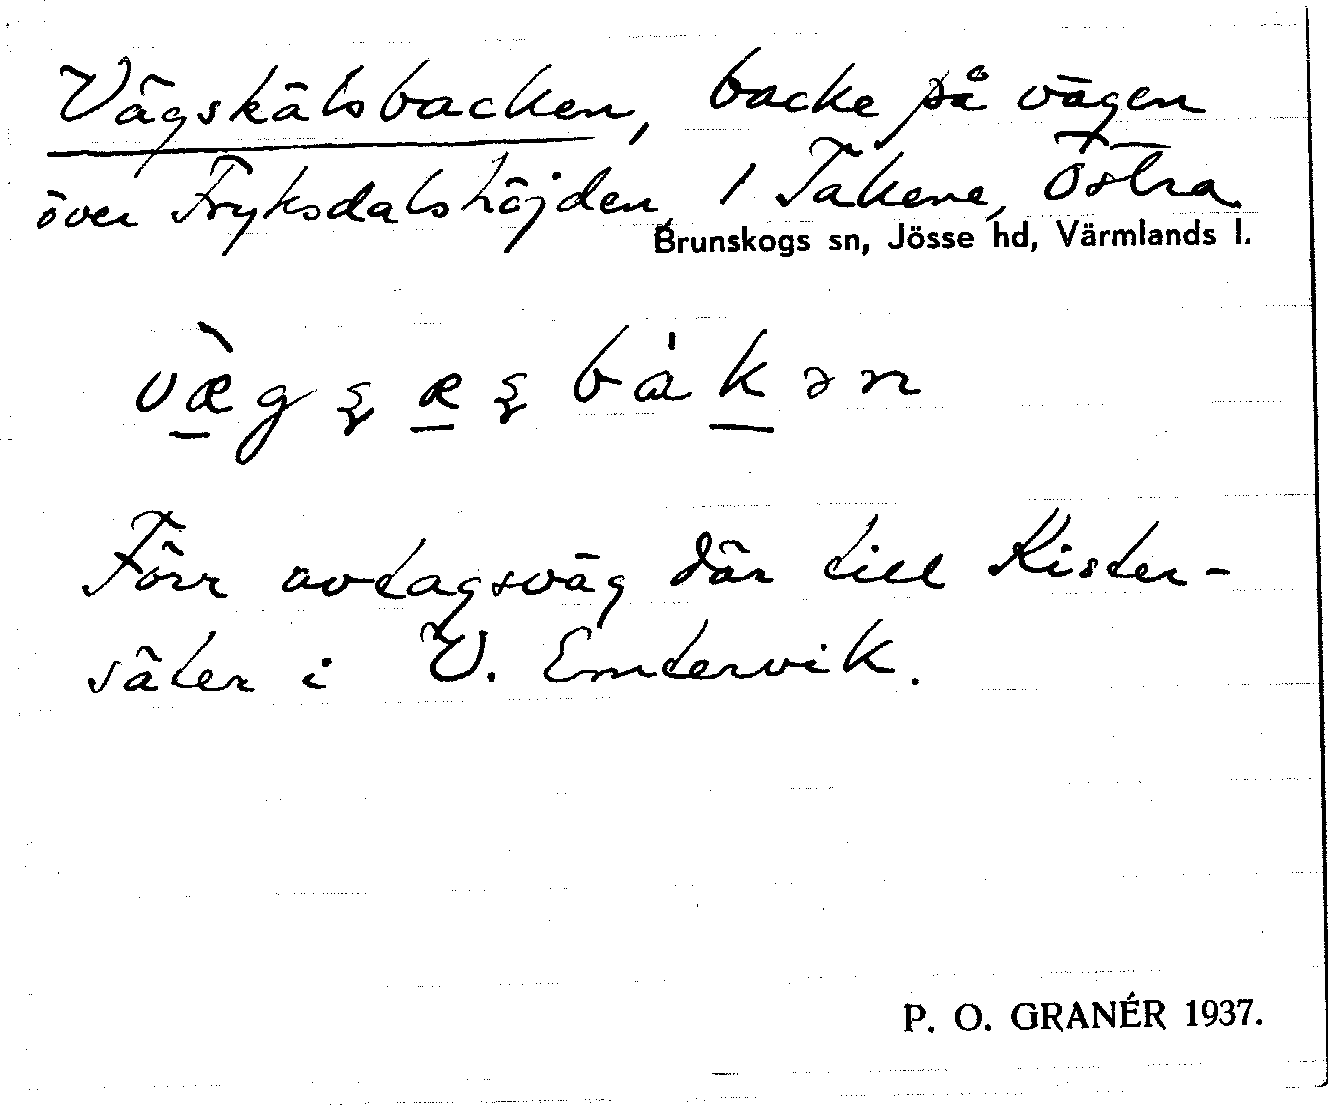 Vägskälsbacken, backe på vägen
över Fryksdalshöjden, 1 Takene, Östra
Brunskogs sn, Jösse hd, Värmlands l.
Förr avtagsväg där till Kister-
säter i V. Emtervik.
P. O. GRANÉR 1937.